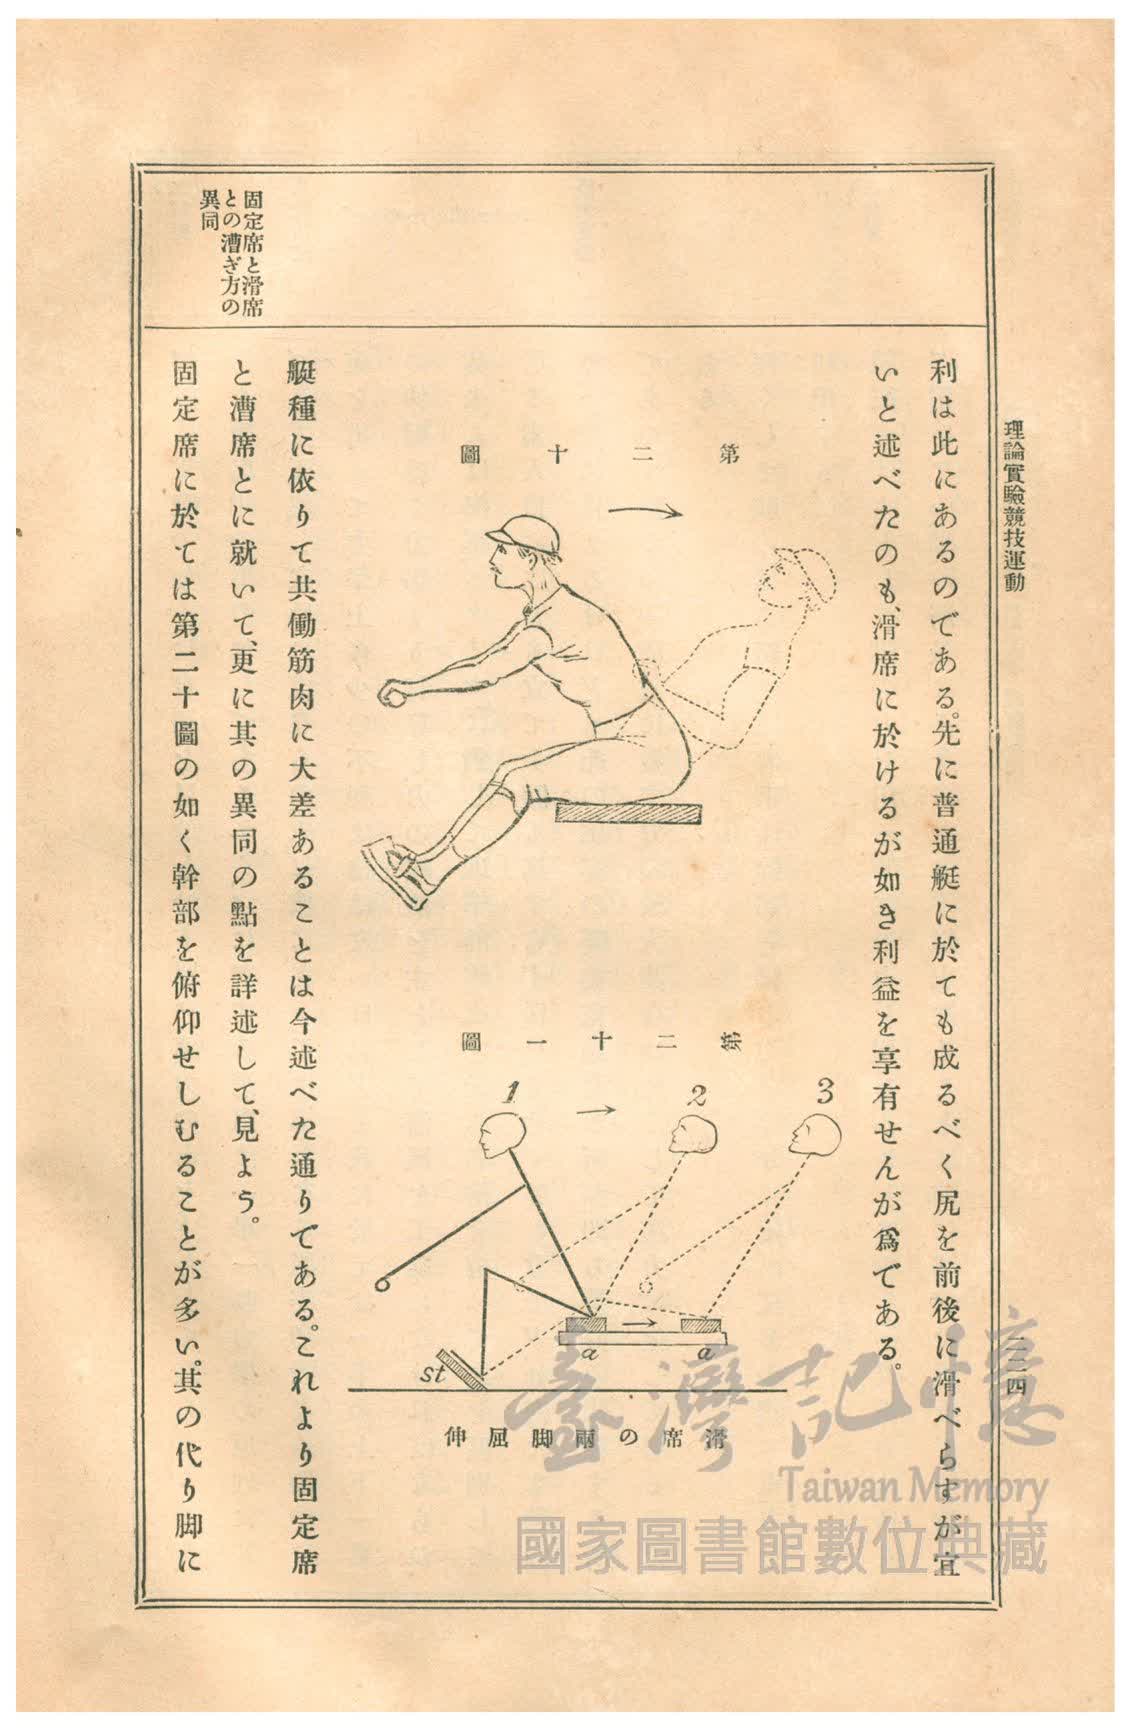 理論實驗競技運動
二二四
固定席と滑席
との漕ぎ方の
異同
利は此にあるのである。先に普通艇に於ても成るべく尻を前後に滑べらすが宜
いと述べたのも、滑席に於けるが如き利益を享有せんが爲である。
第二十圖
第二十一圖
1
2
3
a
a
st
滑席の兩脚屈伸
艇種に依りて共働筋肉に大差あることは今述べた通りである。これより固定席
と漕席とに就いて、更に其の異同の點を詳述して、見よう。
固定席に於ては第二十圖の如く幹部を俯仰せしむることが多い。其の代り脚に
臺灣記憶
Taiwan Memory
國家圖書館數位典藏